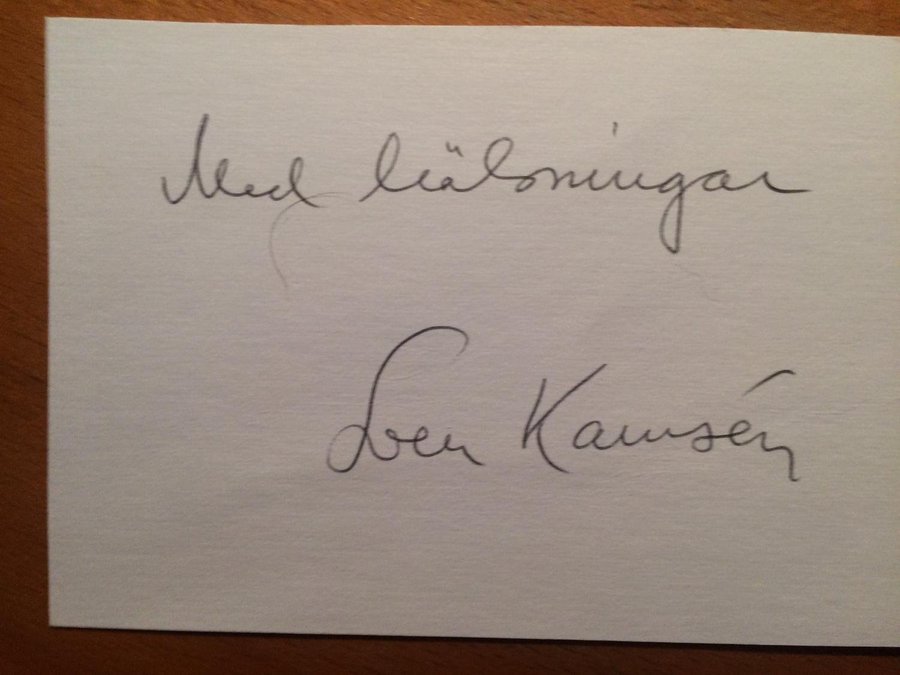 Med hälsningar
Sven Kamsén